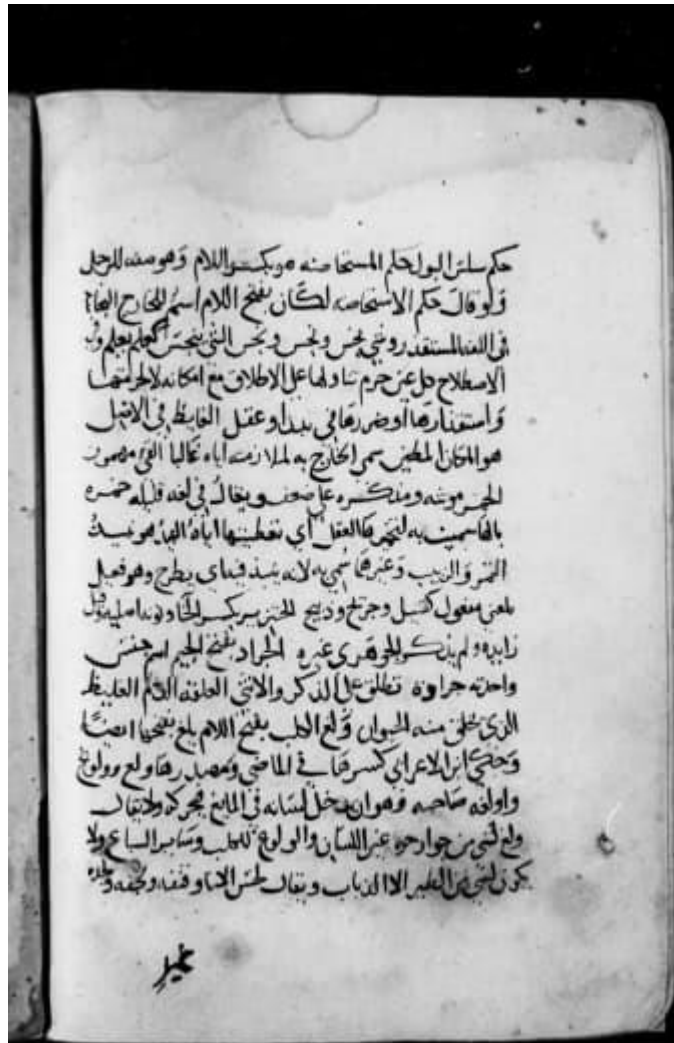 حكم سلس البول حكم المستحاضه هو بكسر اللام وهو صفه للرجل
ولو قال حكم الاستحاضه لكان بفتح اللام اسم للخارج
في اللغه المستقذر ونجس الشي ينجس كعلم يعلم
الاصطلاح كل عين حرم تناولها على الاطلاق مع امكانه لا لحرمتها
واستقذارها او ضررها في بدن او عقل الغايط في الاصل
هو المكان المطمئن سمي الخارج به لملازمته اياه غالبا القيء مهموز
الخمر مونثه ومذكره على ضعف ويقال في لغه قليله خمره
بالها سميت به لتخميرها العقل اي تغطيتها اياه النبيذ هو نبيذ
التمر والزبيب وغيرهما سمي به لانه ينبذ فيه اي يطرح وهو فعيل
بمعنى مفعول كقتيل وجريح وذبيح الخنزير بكسر الخا ونونه اصليه وقيل
زايده ولم يذكر الجوهري غيره الجراد بفتح الجيم اسم جنس
واحدته جراده تطلق على الذكر والانثى العلقه الدم الغليظ
الذي خلق منه الحيوان ولغ الكلب بفتح اللام يلغ بفتحها ايضا
وحكى ابن الاعرابي كسرها في الماضي ومصدرها ولغ وولوغ
واولغه صاحبه وهو ان يدخل لسانه في المايع فيحركه ولا يقال
ولغ بشي من جوارحه غير اللسان والولوغ للكلب وساير السباع ولا
يكون لشي من الطير الا الذباب ويقال لحس الانا وقفنه ولجفه